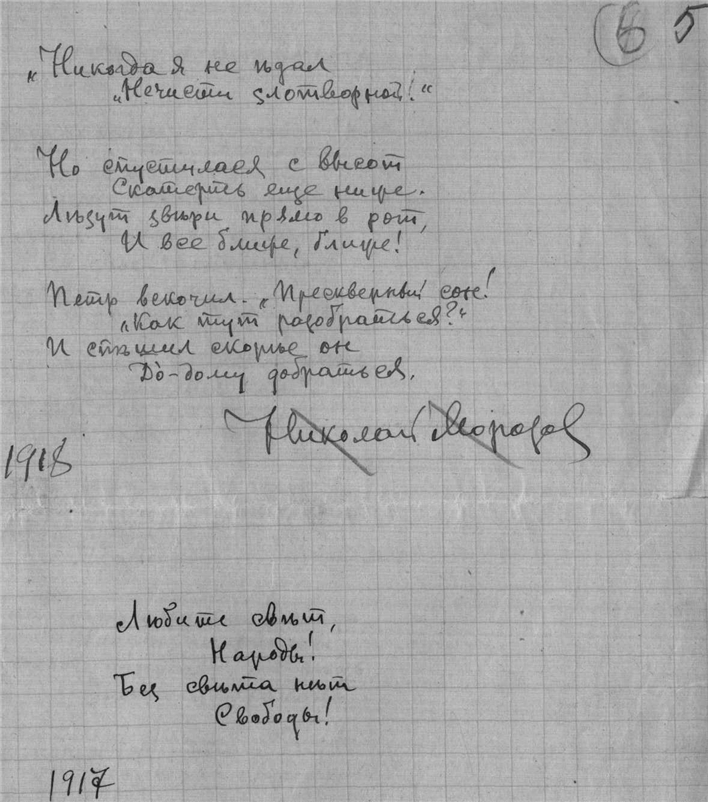 6 5
„Никогда я не ѣдал
„Нечисти злотворной!“
Но спустилася с высот
Скатерть еще ниже.
Лѣзут звѣри прямо в рот,
И все ближе, ближе!
Петр вскочил. „Прескверный сон!
„Как тут разобраться?“
И спѣшил скорѣе он
До-дому добраться.
Николай Морозов
1918
Любите свѣт,
Народы!
Без свѣта нѣт
Свободы!
1917